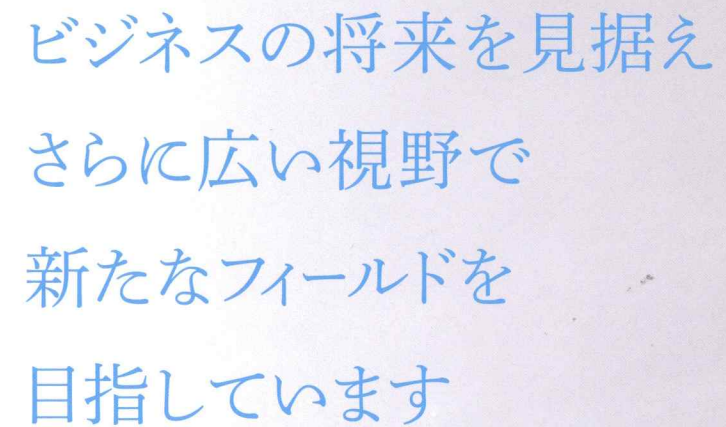 ビジネスの将来を見据え
さらに広い視野で
新たなフィールドを
目指しています